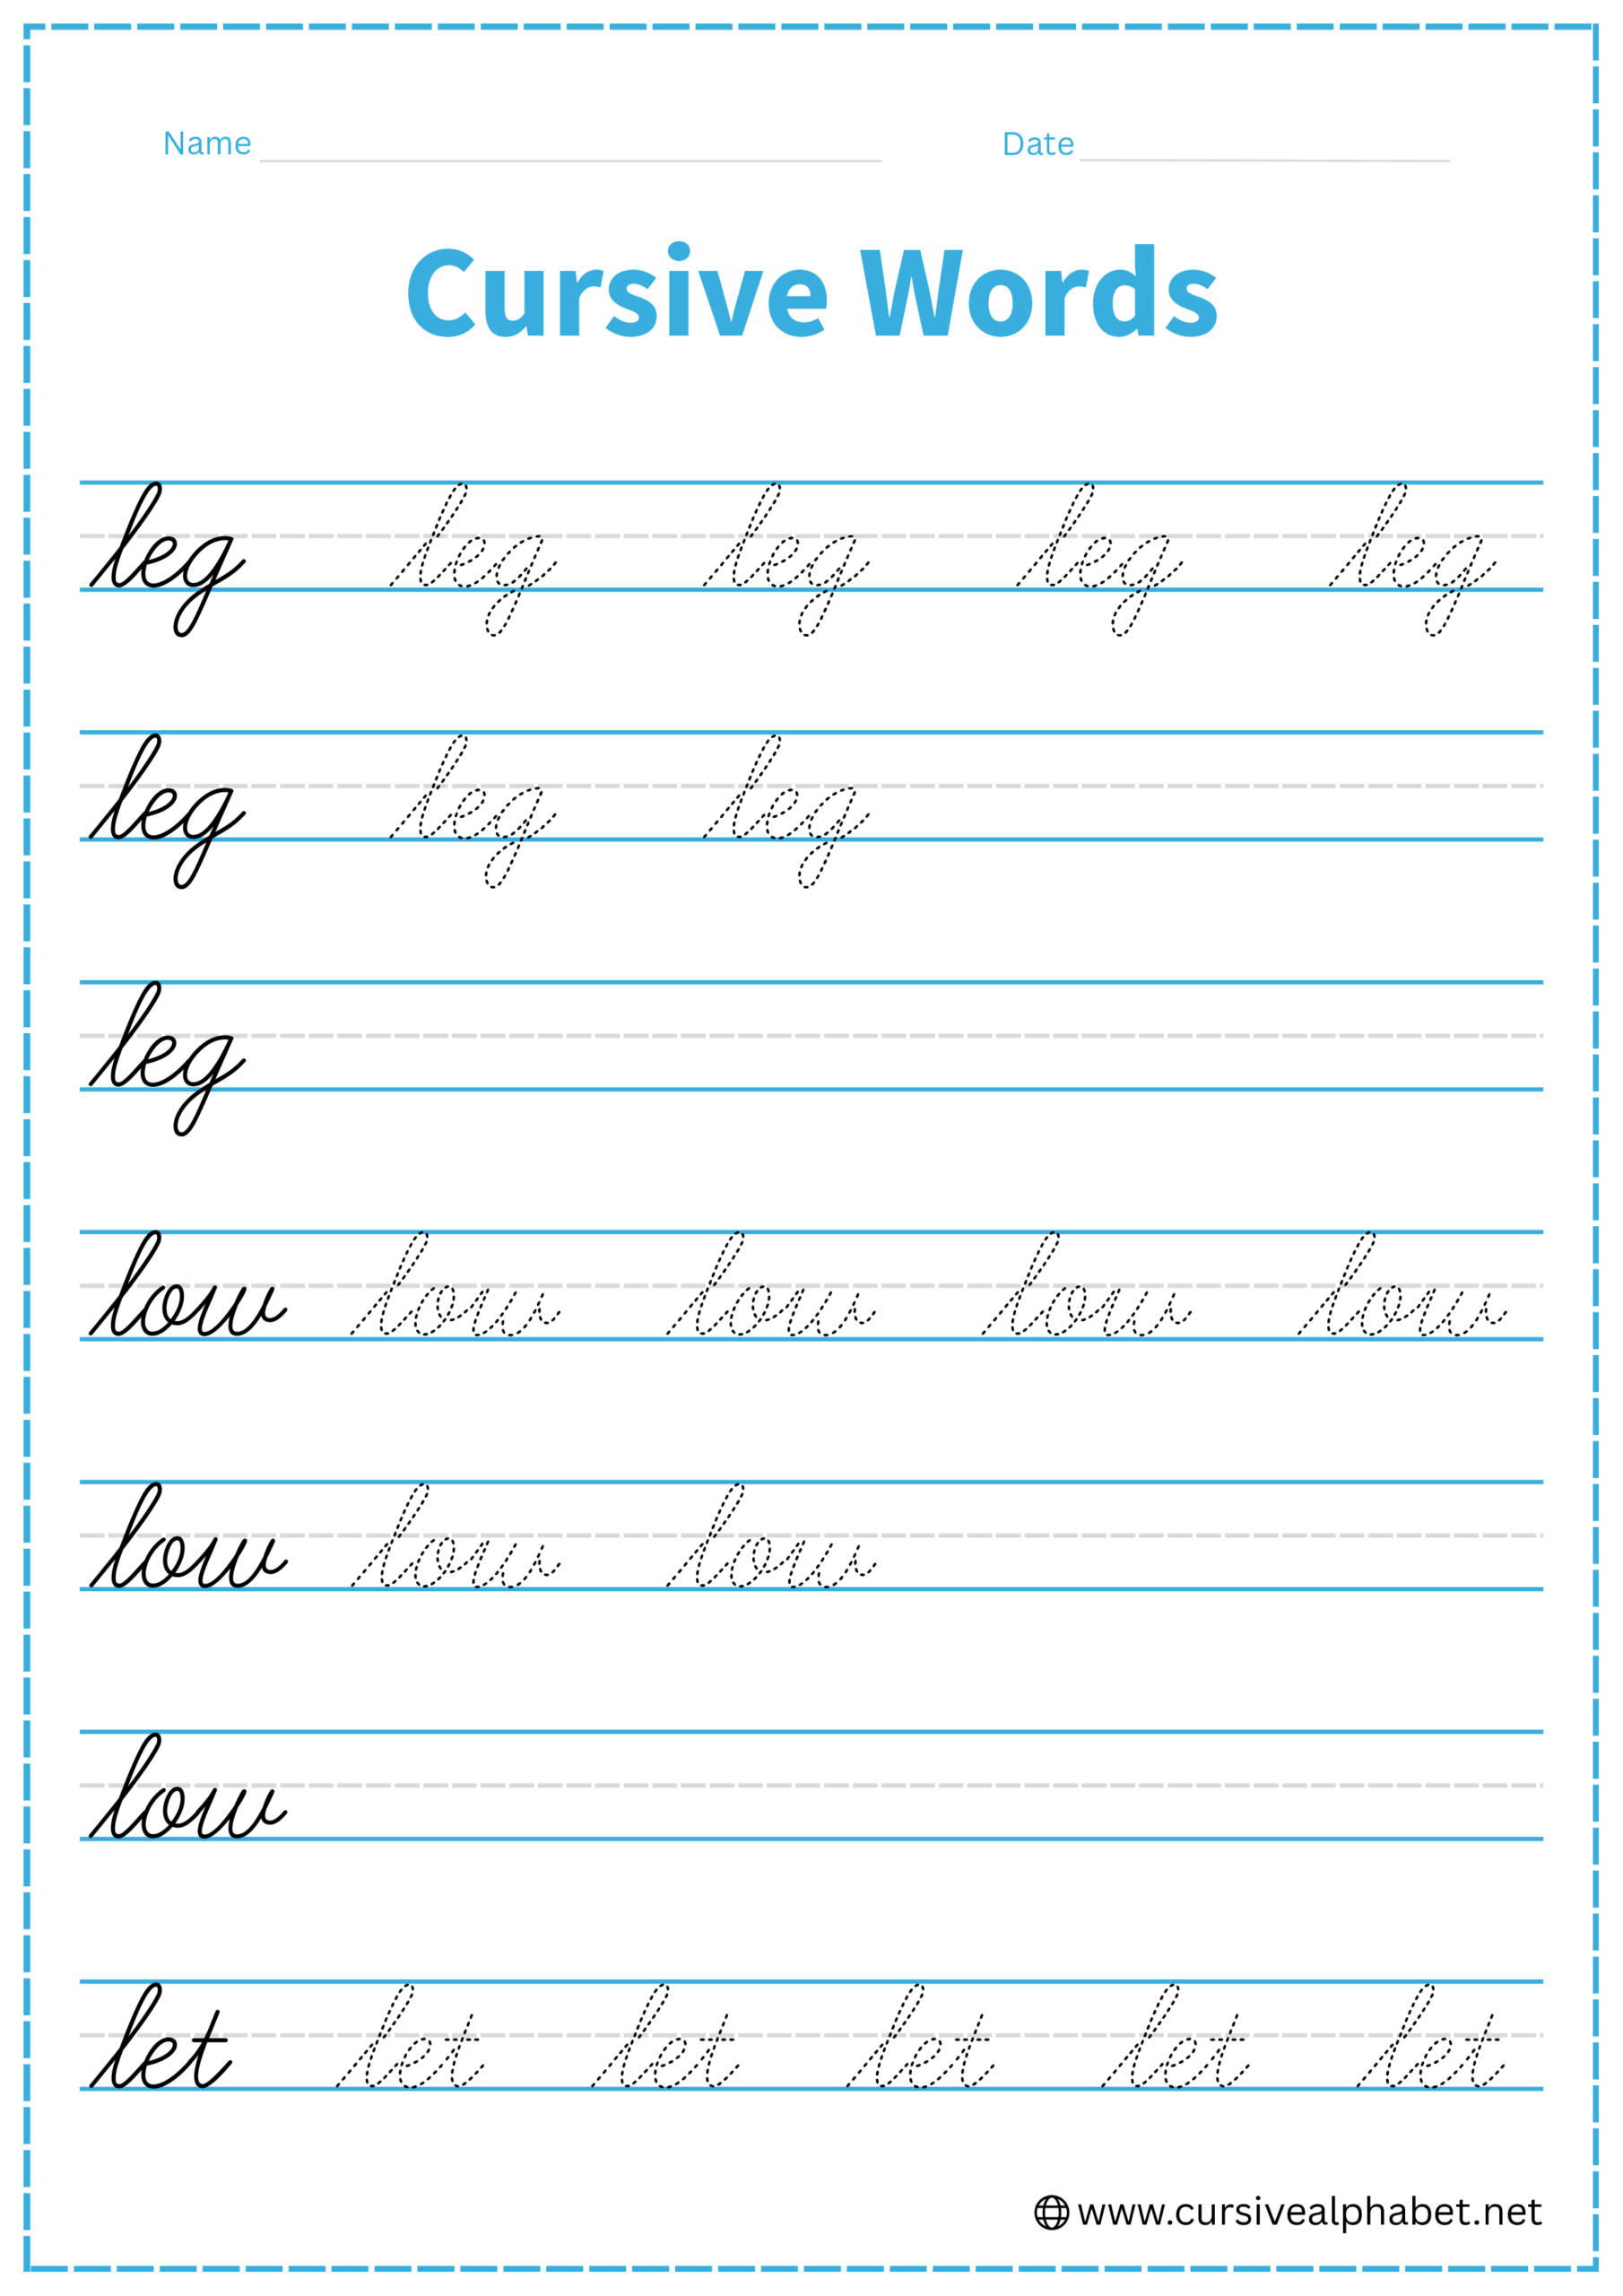 Name Date
Cursive Words
leg leg leg leg leg
leg leg leg
leg
low low low low low
low low low
low
let let let let let let
www.cursivealphabet.net